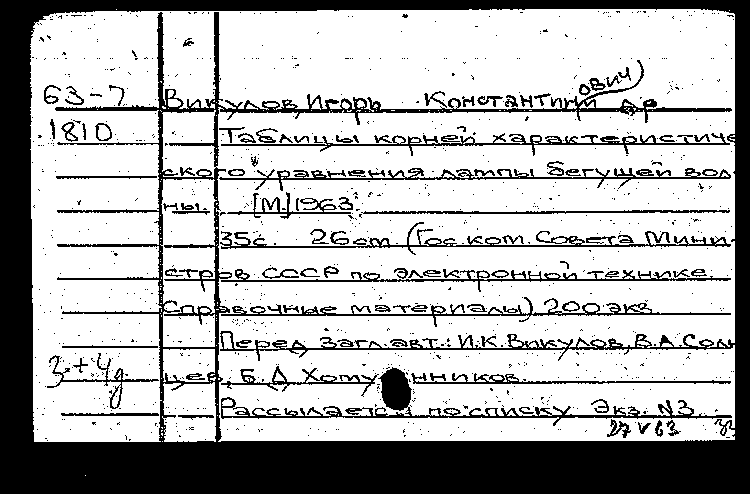 63-7 Викулов, Игорь Константинович др
1810 Таблицы корней характеристиче
ского уравнения лампы бегущей вол
ны. [М.] 1963
35с. 26 см (Гос. ком. Совета Мини-
стров СССР по электронной технике.
Справочные материалы) 200 экз
Перед загл. авт.: И.К. Викулов, В.А. Солн
3+4д цев, Б.Д. Хотунников.
Рассылается по списку Экз. N3
27 V 63